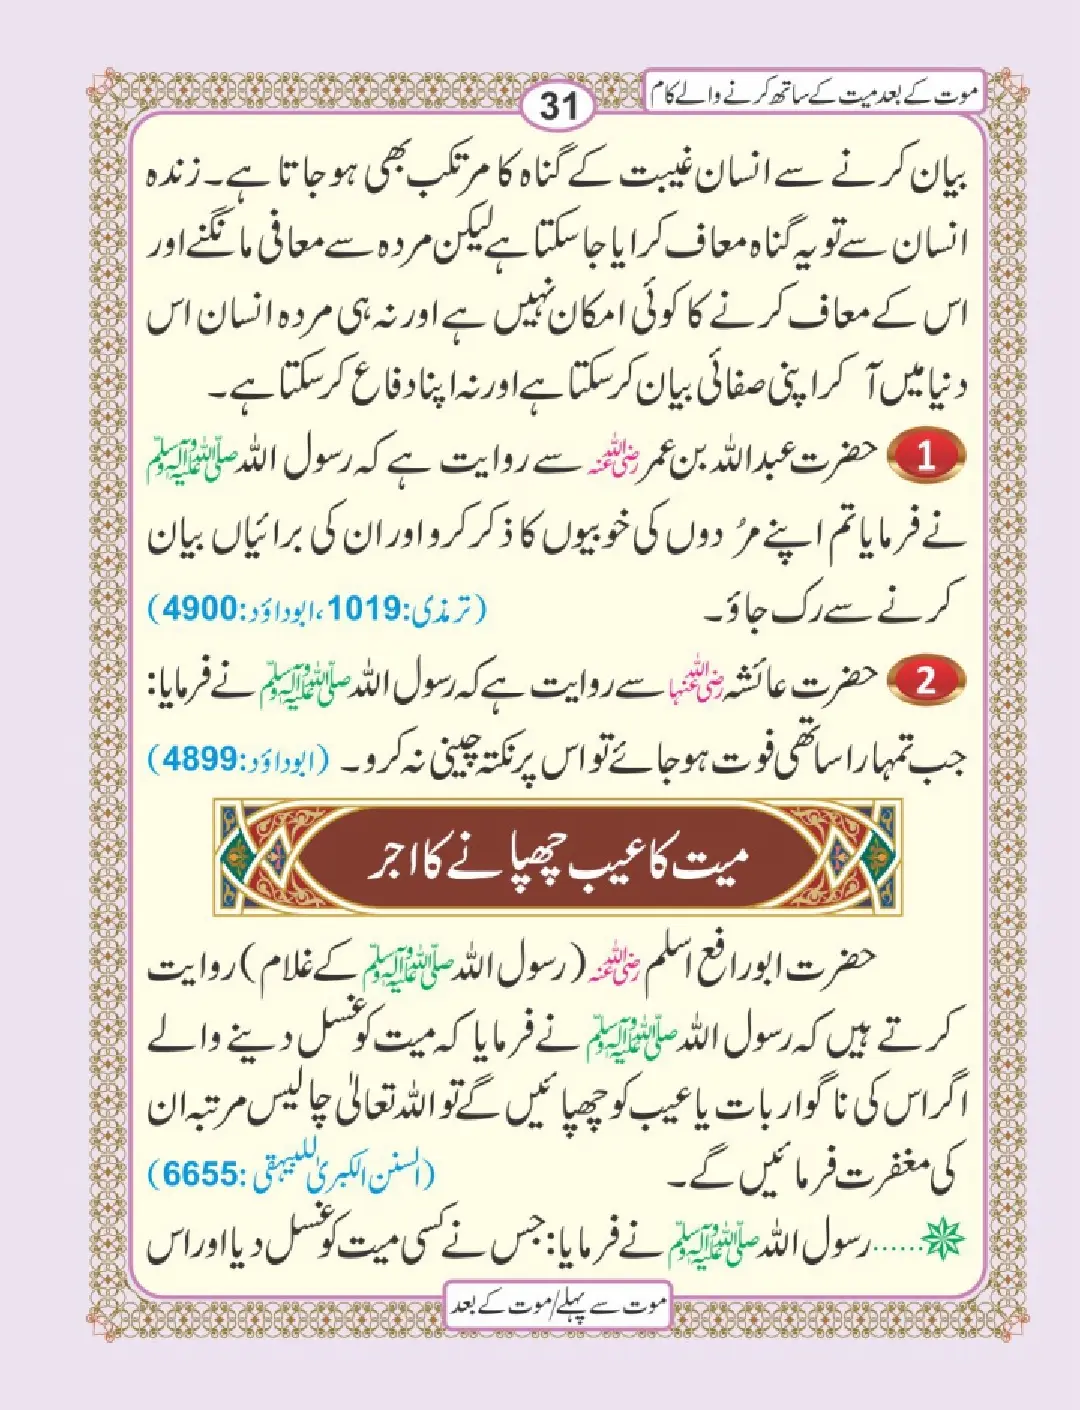 موت کے بعد میت کے ساتھ کرنے والے کام
31
بیان کرنے سے انسان غیبت کے گناہ کا مرتکب بھی ہو جاتا ہے۔ زندہ
انسان سے تو یہ گناہ معاف کرایا جا سکتا ہے لیکن مردہ سے معافی مانگنے اور
اس کے معاف کرنے کا کوئی امکان نہیں ہے اور نہ ہی مردہ انسان اس
دنیا میں آ کر اپنی صفائی بیان کر سکتا ہے اور نہ اپنا دفاع کر سکتا ہے۔
1 حضرت عبداللہ بن عمر رضی اللہ عنہ سے روایت ہے کہ رسول اللہ صلی اللہ علیہ وآلہ وسلم
نے فرمایا تم اپنے مرُدوں کی خوبیوں کا ذکر کرو اور ان کی برائیاں بیان
کرنے سے رک جاؤ۔ (ترمذی:1019، ابوداؤد:4900)
2 حضرت عائشہ رضی اللہ عنہا سے روایت ہے کہ رسول اللہ صلی اللہ علیہ وآلہ وسلم نے فرمایا:
جب تمہارا ساتھی فوت ہو جائے تو اس پر نکتہ چینی نہ کرو۔ (ابوداؤد:4899)
میت کا عیب چھپانے کا اجر
حضرت ابورافع اسلم رضی اللہ عنہ (رسول اللہ صلی اللہ علیہ وآلہ وسلم کے غلام) روایت
کرتے ہیں کہ رسول اللہ صلی اللہ علیہ وآلہ وسلم نے فرمایا کہ میت کو غسل دینے والے
اگر اس کی ناگوار بات یا عیب کو چھپائیں گے تو اللہ تعالیٰ چالیس مرتبہ ان
کی مغفرت فرمائیں گے۔ (السنن الکبریٰ للبیہقی:6655)
......رسول اللہ صلی اللہ علیہ وآلہ وسلم نے فرمایا: جس نے کسی میت کو غسل دیا اور اس
موت سے پہلے/موت کے بعد